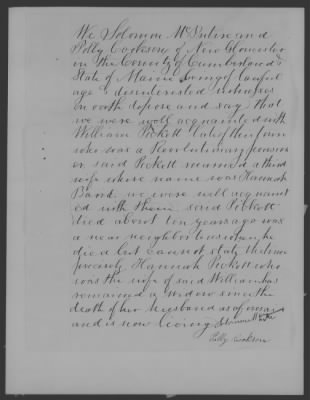 We Solomon McIntire and
Polly Cookson of New Gloucester
in the County of Cumberland
State of Maine being of lawful
age & disinterested witnesses
on oath depose and say that
we were well acquainted with
William Pickett late of this town
who was a Revolutionary Pension
er said Pickett married a third
wife whose name was Hannah
Band. we were well acquaint
ed with them said Pickett
died about ten years ago was
a near neighbor to us when he
died but cannot state the time
precisely Hannah Pickett who
was the wife of said William has
remained a widow since the
death of her husband as aforesaid
and is now living Solomon
Polly Cookson